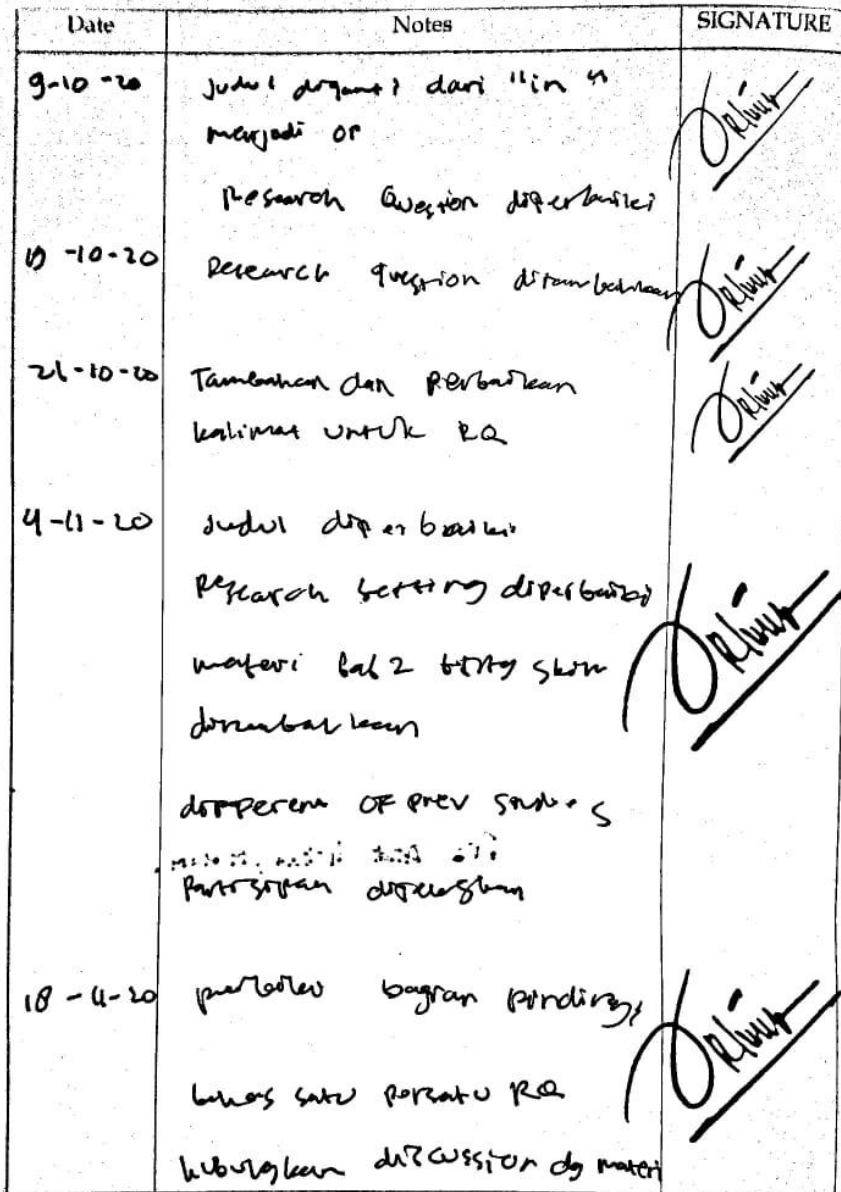 Date Notes SIGNATURE
9-10-20 Judul diganti dari "in"
menjadi of
Research Question diperbaiki
-10-20 Research question ditambahkan
21-10-20 Tambahan dan perbaikan
kalimat untuk RQ
4-11-20 Judul diperbaiki
Research setting diperbaiki
materi bab 2
ditambahkan
OF prev studies
Partisipan
18-11-20 perbaiki bagian finding,
bahas satu persatu RQ
hubungkan discussion dg materi